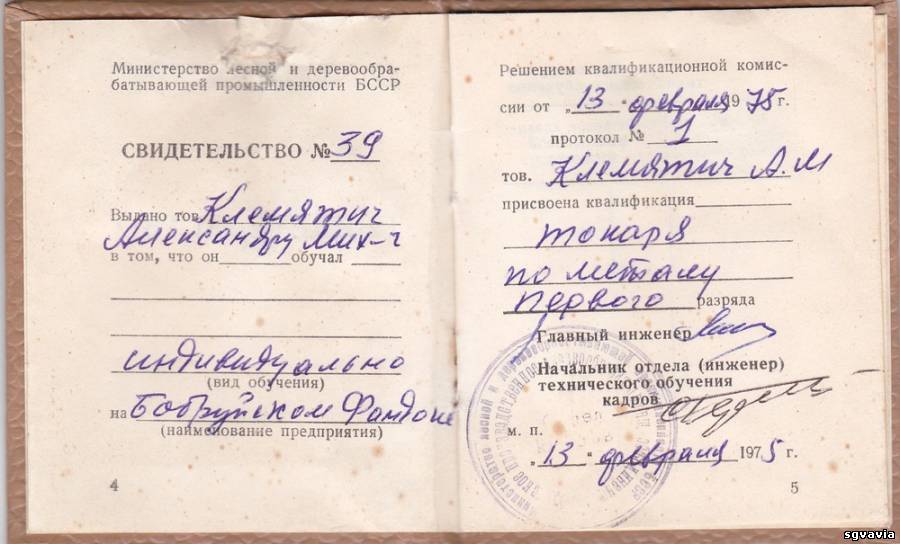 Министерство лесной и деревообра-
батывающей промышленности БССР
СВИДЕТЕЛЬСТВО № 39
Выдано тов. Клемятич
Александру Мих-ч
в том, что он обучал
индивидуально
(вид обучения)
на Бобруйском Фандоке
(наименование предприятия)
4
Решением квалификационной комис-
сии от „13" февраля 1975 г.
протокол № 1
тов. Клемятич А. М
присвоена квалификация
токаря
по металу
первого разряда
Главный инженер
Начальник отдела (инженер)
технического обучения
кадров
м. п.
„13" февраля 1975 г.
5
sgvavia